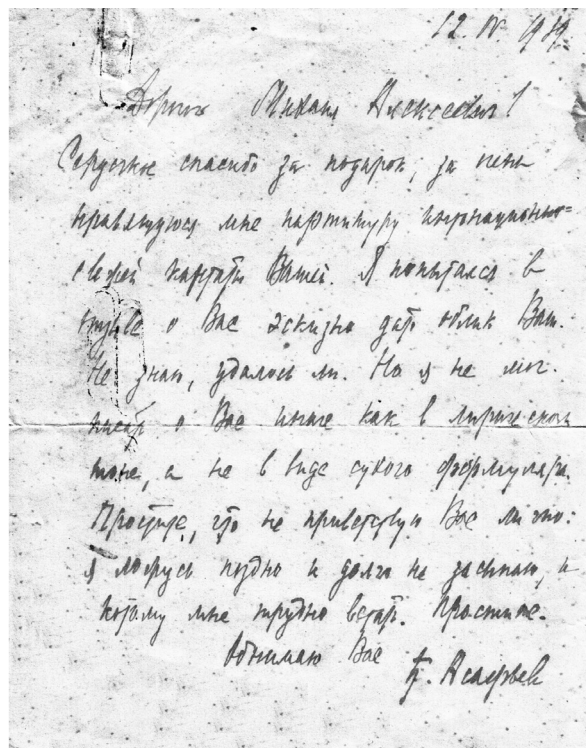 12. IV 1949.
Дорогой Михаил Алексеевич!
Сердечное спасибо за подарок, за очень
нравящуюся мне партитуру интонационно-
свежей кантаты Вашей. Я попытался в
о Вас эскизно дать облик Ваш.
Не знаю, удалось ли. Но я не мог
писать о Вас иначе как в лирическом
тоне, а не в виде сухого формуляра.
Простите, что не приветствую Вас лично:
я ложусь поздно и долго не засыпаю, и
потому мне трудно встать. Простите.
Обнимаю Вас Б. Асафьев